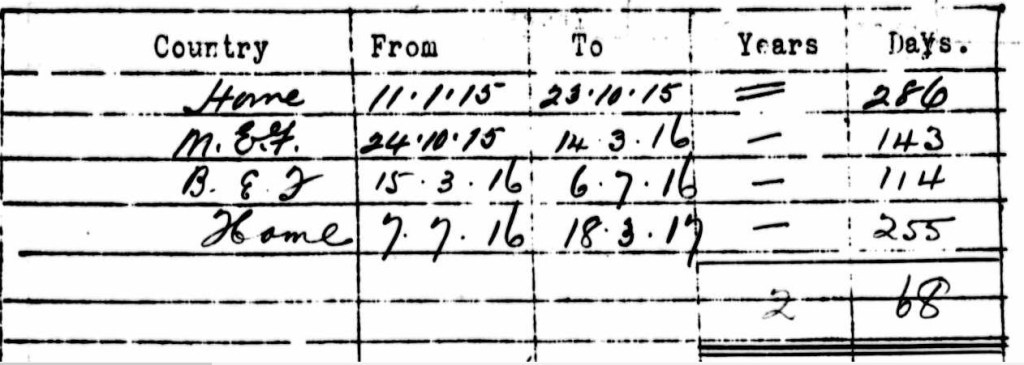 Country From To Years Days.
Home 11.1.15 23.10.15 = 286
M.E.F. 24.10.15 14.3.16 - 143
B.E.F 15.3.16 6.7.16 - 114
Home 7.7.16 18.3.17 - 255
2 68